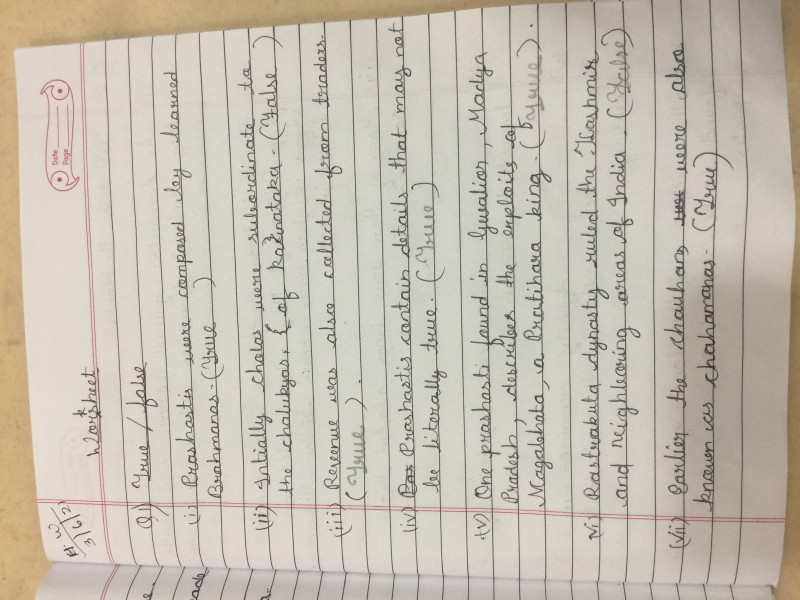 Date
Page
H.W
3/6/21
Worksheet
Q1) True / false
(i) Prashastis were composed by learned
Brahmanas - (True )
(ii) Intially cholas were subordinate to
the chalukyas, of Karnataka - (False )
(iii) Revenue was also collected from traders.
(True ).
(iv) Prashastis contain details that may not
be literally true. (True )
(v) One prashasti found in Gwalior, Madya
Pradesh, describes the exploits of
Nagabhata, a Pratihara king - (True ).
vi) Rastrakuta dynasty ruled the Kashmir
and neighbering areas of India. (False)
(vii) Earlier the chauhans were also
known as chahamanas - (True )